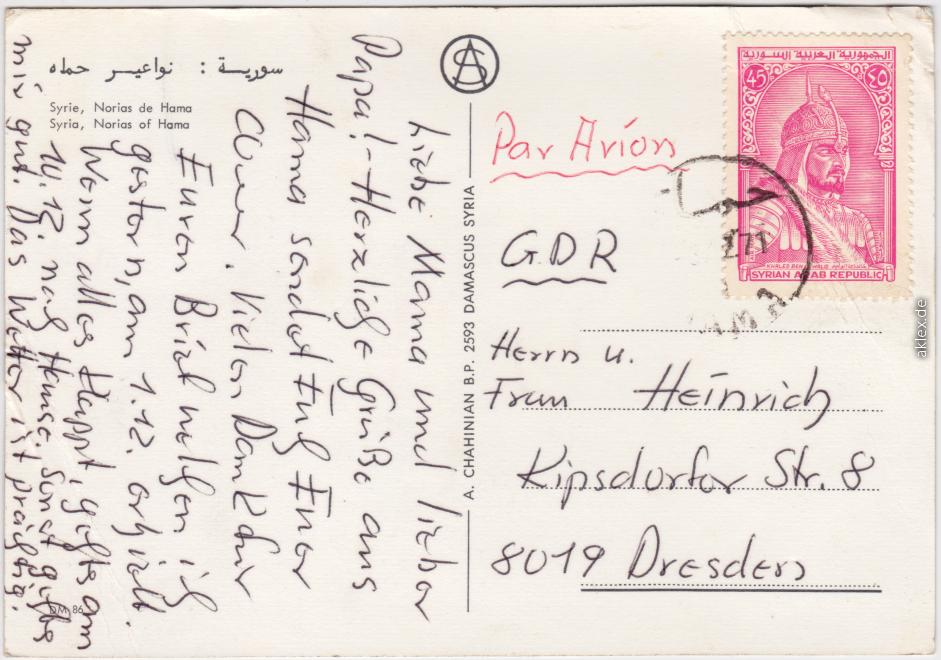 سورية : نواعير حماه
Syrie, Norias de Hama
Syria, Norias of Hama
Liebe Mama und lieber
Papa! – Herzliche Grüße aus
Hama sendet Euch Euer
. Vielen Dank für
Euren Brief, welchen ich
gestern, am 1.12. erhielt.
Wenn alles klappt, geht's am
10.12. nach Hause. Sonst geht's
mir gut. Das Wetter ist prächtig.
DM 86
A. CHAHINIAN B.P. 2593 DAMASCUS SYRIA
AS
الجمهورية العربية السورية
45 ٤٥
KHALED BEN WALID
SYRIAN ARAB REPUBLIC
Par Avion
GDR
Herrn u.
Frau Heinrich
Kipsdorfer Str. 8
8019 Dresden
aklex.de